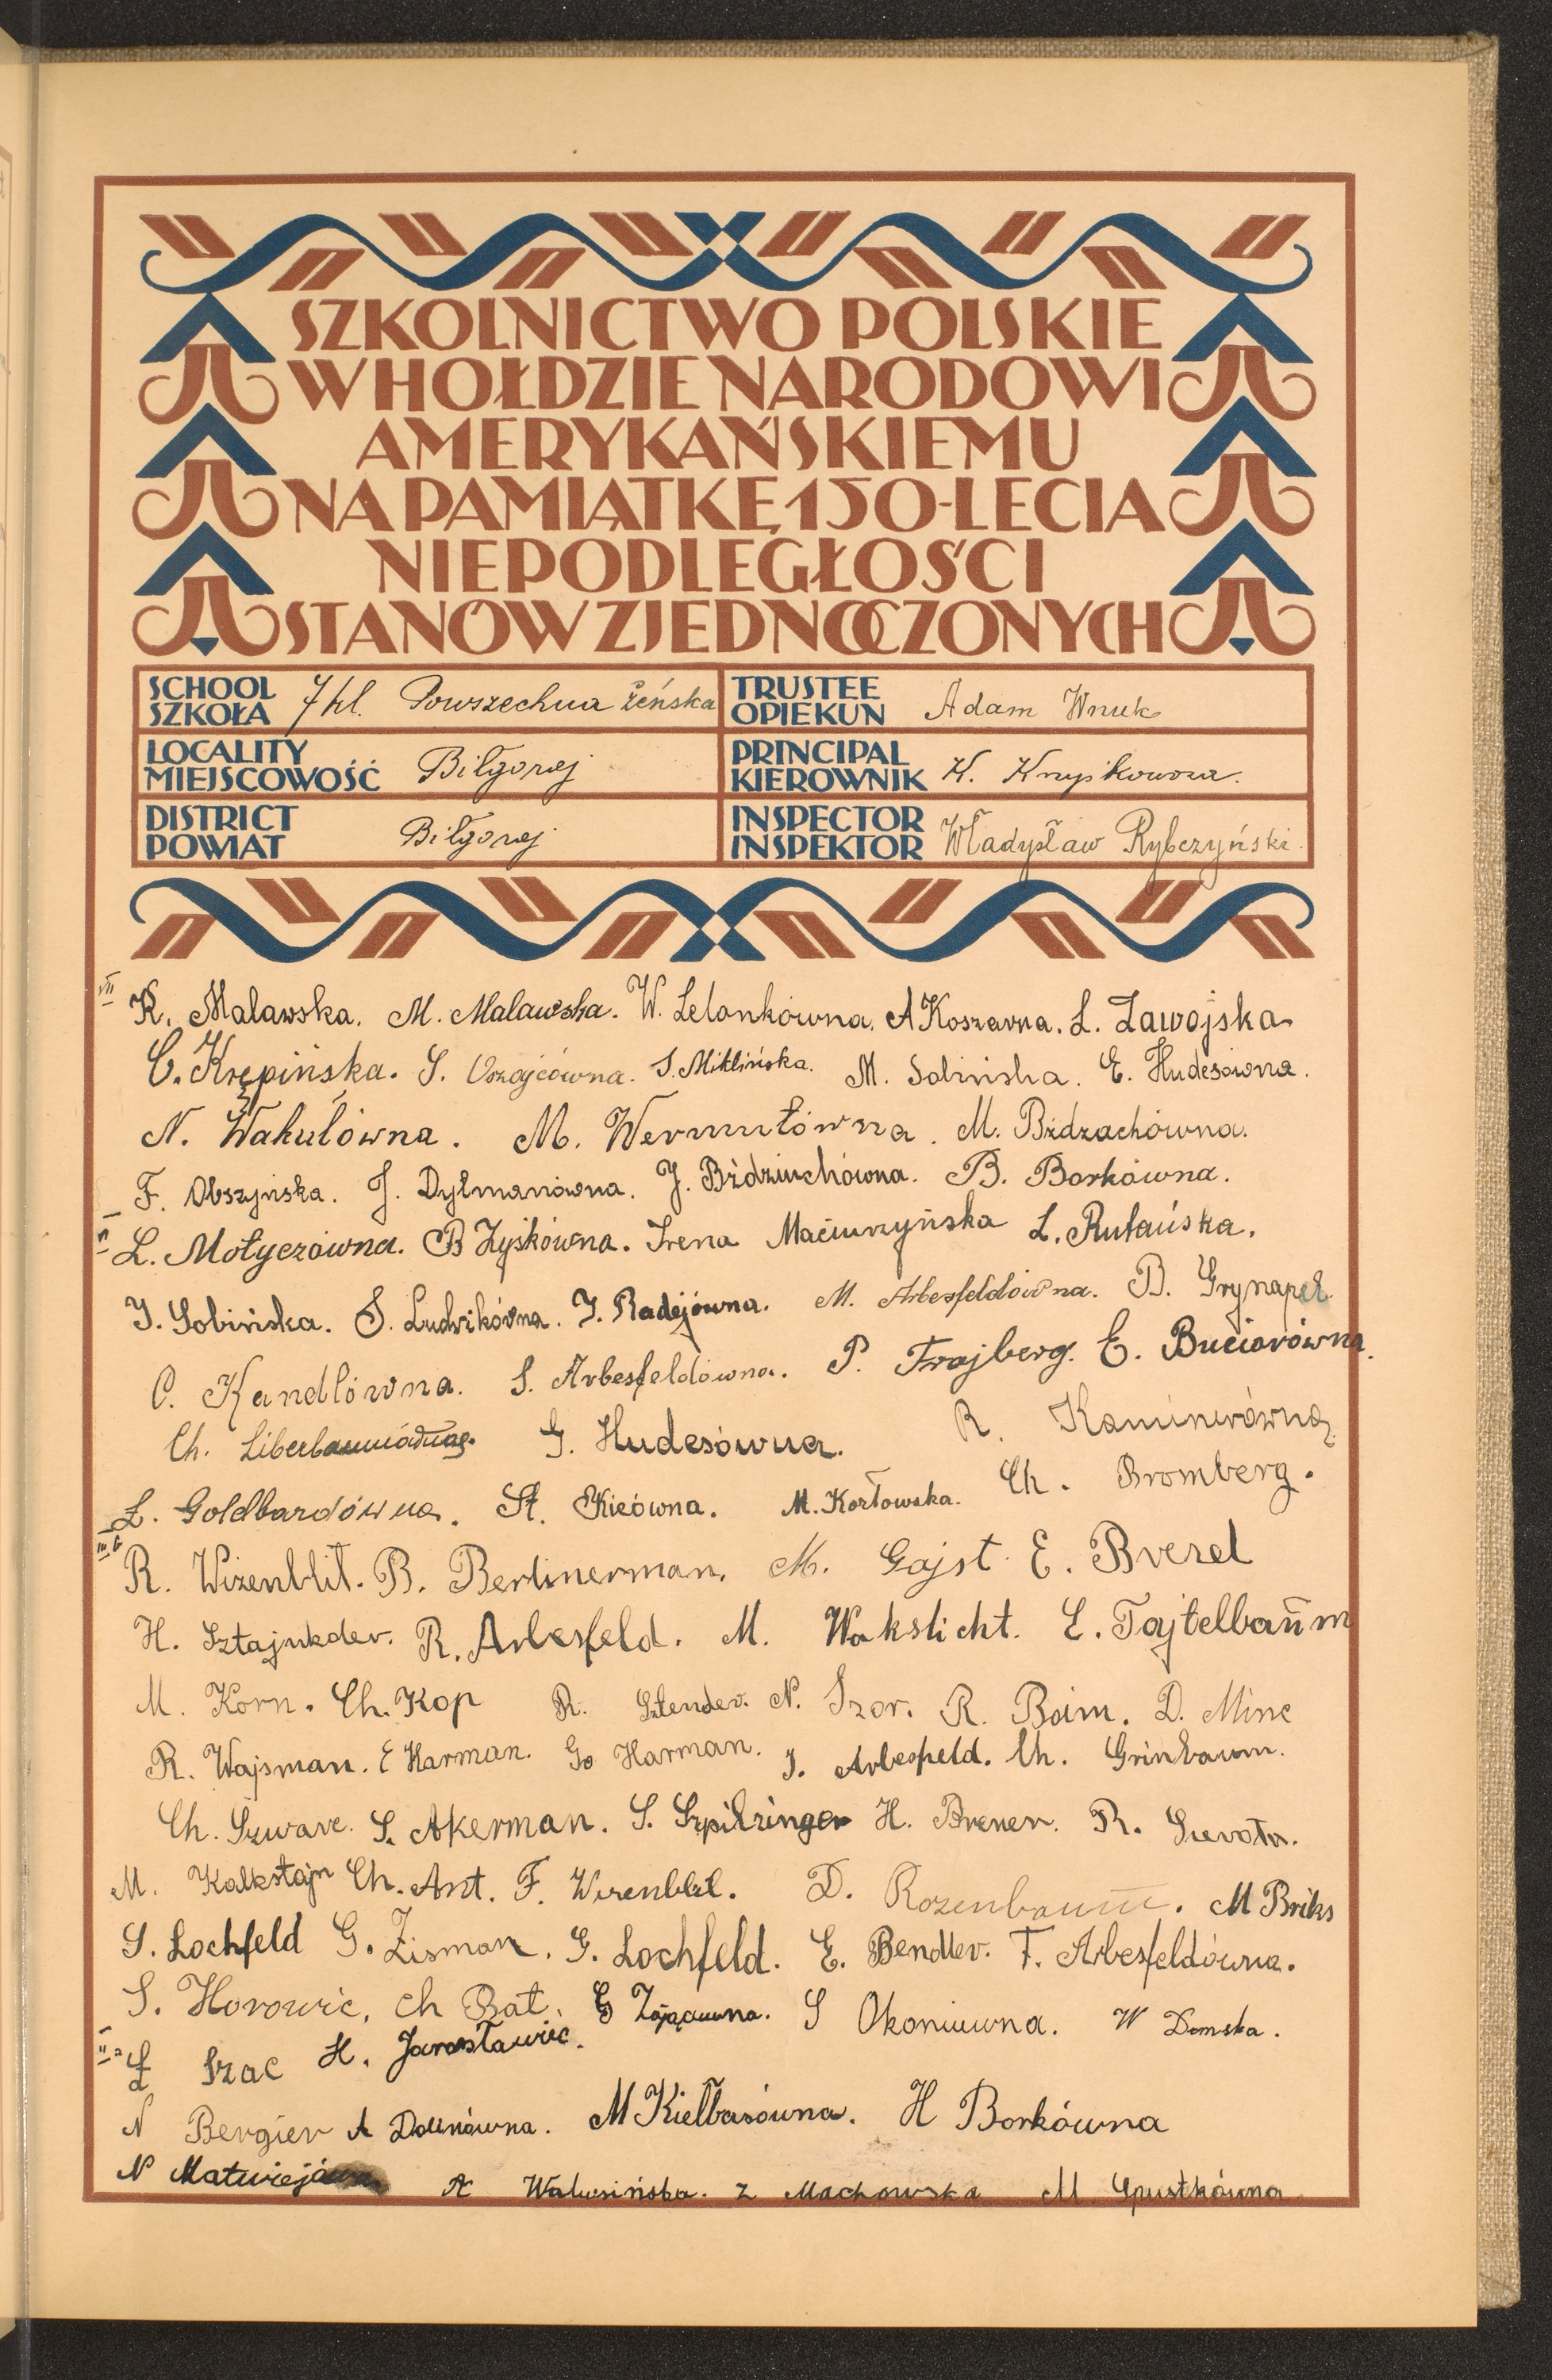 SZKOLNICTWO POLSKIE
W HOŁDZIE NARODOWI
AMERYKAŃSKIEMU
NA PAMIĄTKĘ 150-LECIA
NIEPODLEGŁOŚCI
STANÓW ZJEDNOCZONYCH
SCHOOL SZKOŁA 7 kl. Powszechna żeńska
TRUSTEE OPIEKUN Adam Wnuk
LOCALITY MIEJSCOWOŚĆ Biłgoraj
PRINCIPAL KIEROWNIK K.
DISTRICT POWIAT Biłgoraj
INSPECTOR INSPEKTOR Władysław Rybczyński
VII K. Malawska. M. Malawska. W. Lelonkówna. A Koszarna. L. Zawojska
C. Krępińska. S. S. Miklińska. M. Solińska. E. Hudesówna.
N. Wakulówna. M. Wermutówna. M. Bździachówna.
F. Obszyńska. J. Dylmanówna. J. Bździuchówna. B. Borkówna.
VI L. Motyczówna. B Zyśkówna. Irena Maciurzyńska L. Rutańska.
J. Sobińska. S. Ludwikówna. J. Radejówna. M. Arbesfeldówna. B. Grynapel
C. Kandlówna. S. Arbesfeldówna. P. Frajberg. E. Buciorówna.
Ch. G. Hudesówna. R. Kaminerówna
L. Goldbardówna. St. Kicówna. M. Kozłowska. Ch. Bromberg.
III b R. Wizenblit. B. Berlinerman. M. Gajst E. Brezel
H. Sztajnkder. R. Arbesfeld. M. Wakslicht. E. Tajtelbaum
M. Korn. Ch. Kop R. Sztender. N. Szor. R. Boim. D. Minc
R. Wajsman. E Harman. G. Harman. J. Arbesfeld. Ch. Grinbaum.
Ch. Szwarc. S. Akerman. S. Szpilzinger H. Brener. R.
M. Kalksztajn Ch. Ant. F. Wizenblit. D. Rozenbaum. M Briks
S. Lochfeld G. Zisman. G. Lochfeld. E. Bendler. F. Arbesfeldówna.
S. Horowic. Ch Bat. G Zającuwna. S Okoniuwna. W Domska.
II a Szac H. Jarosławiec.
N Bergier A Dolinówna. M Kiełbasówna. H Borkówna
N Matwiejówna A Walusińska. Z Machowska M Upustkówna